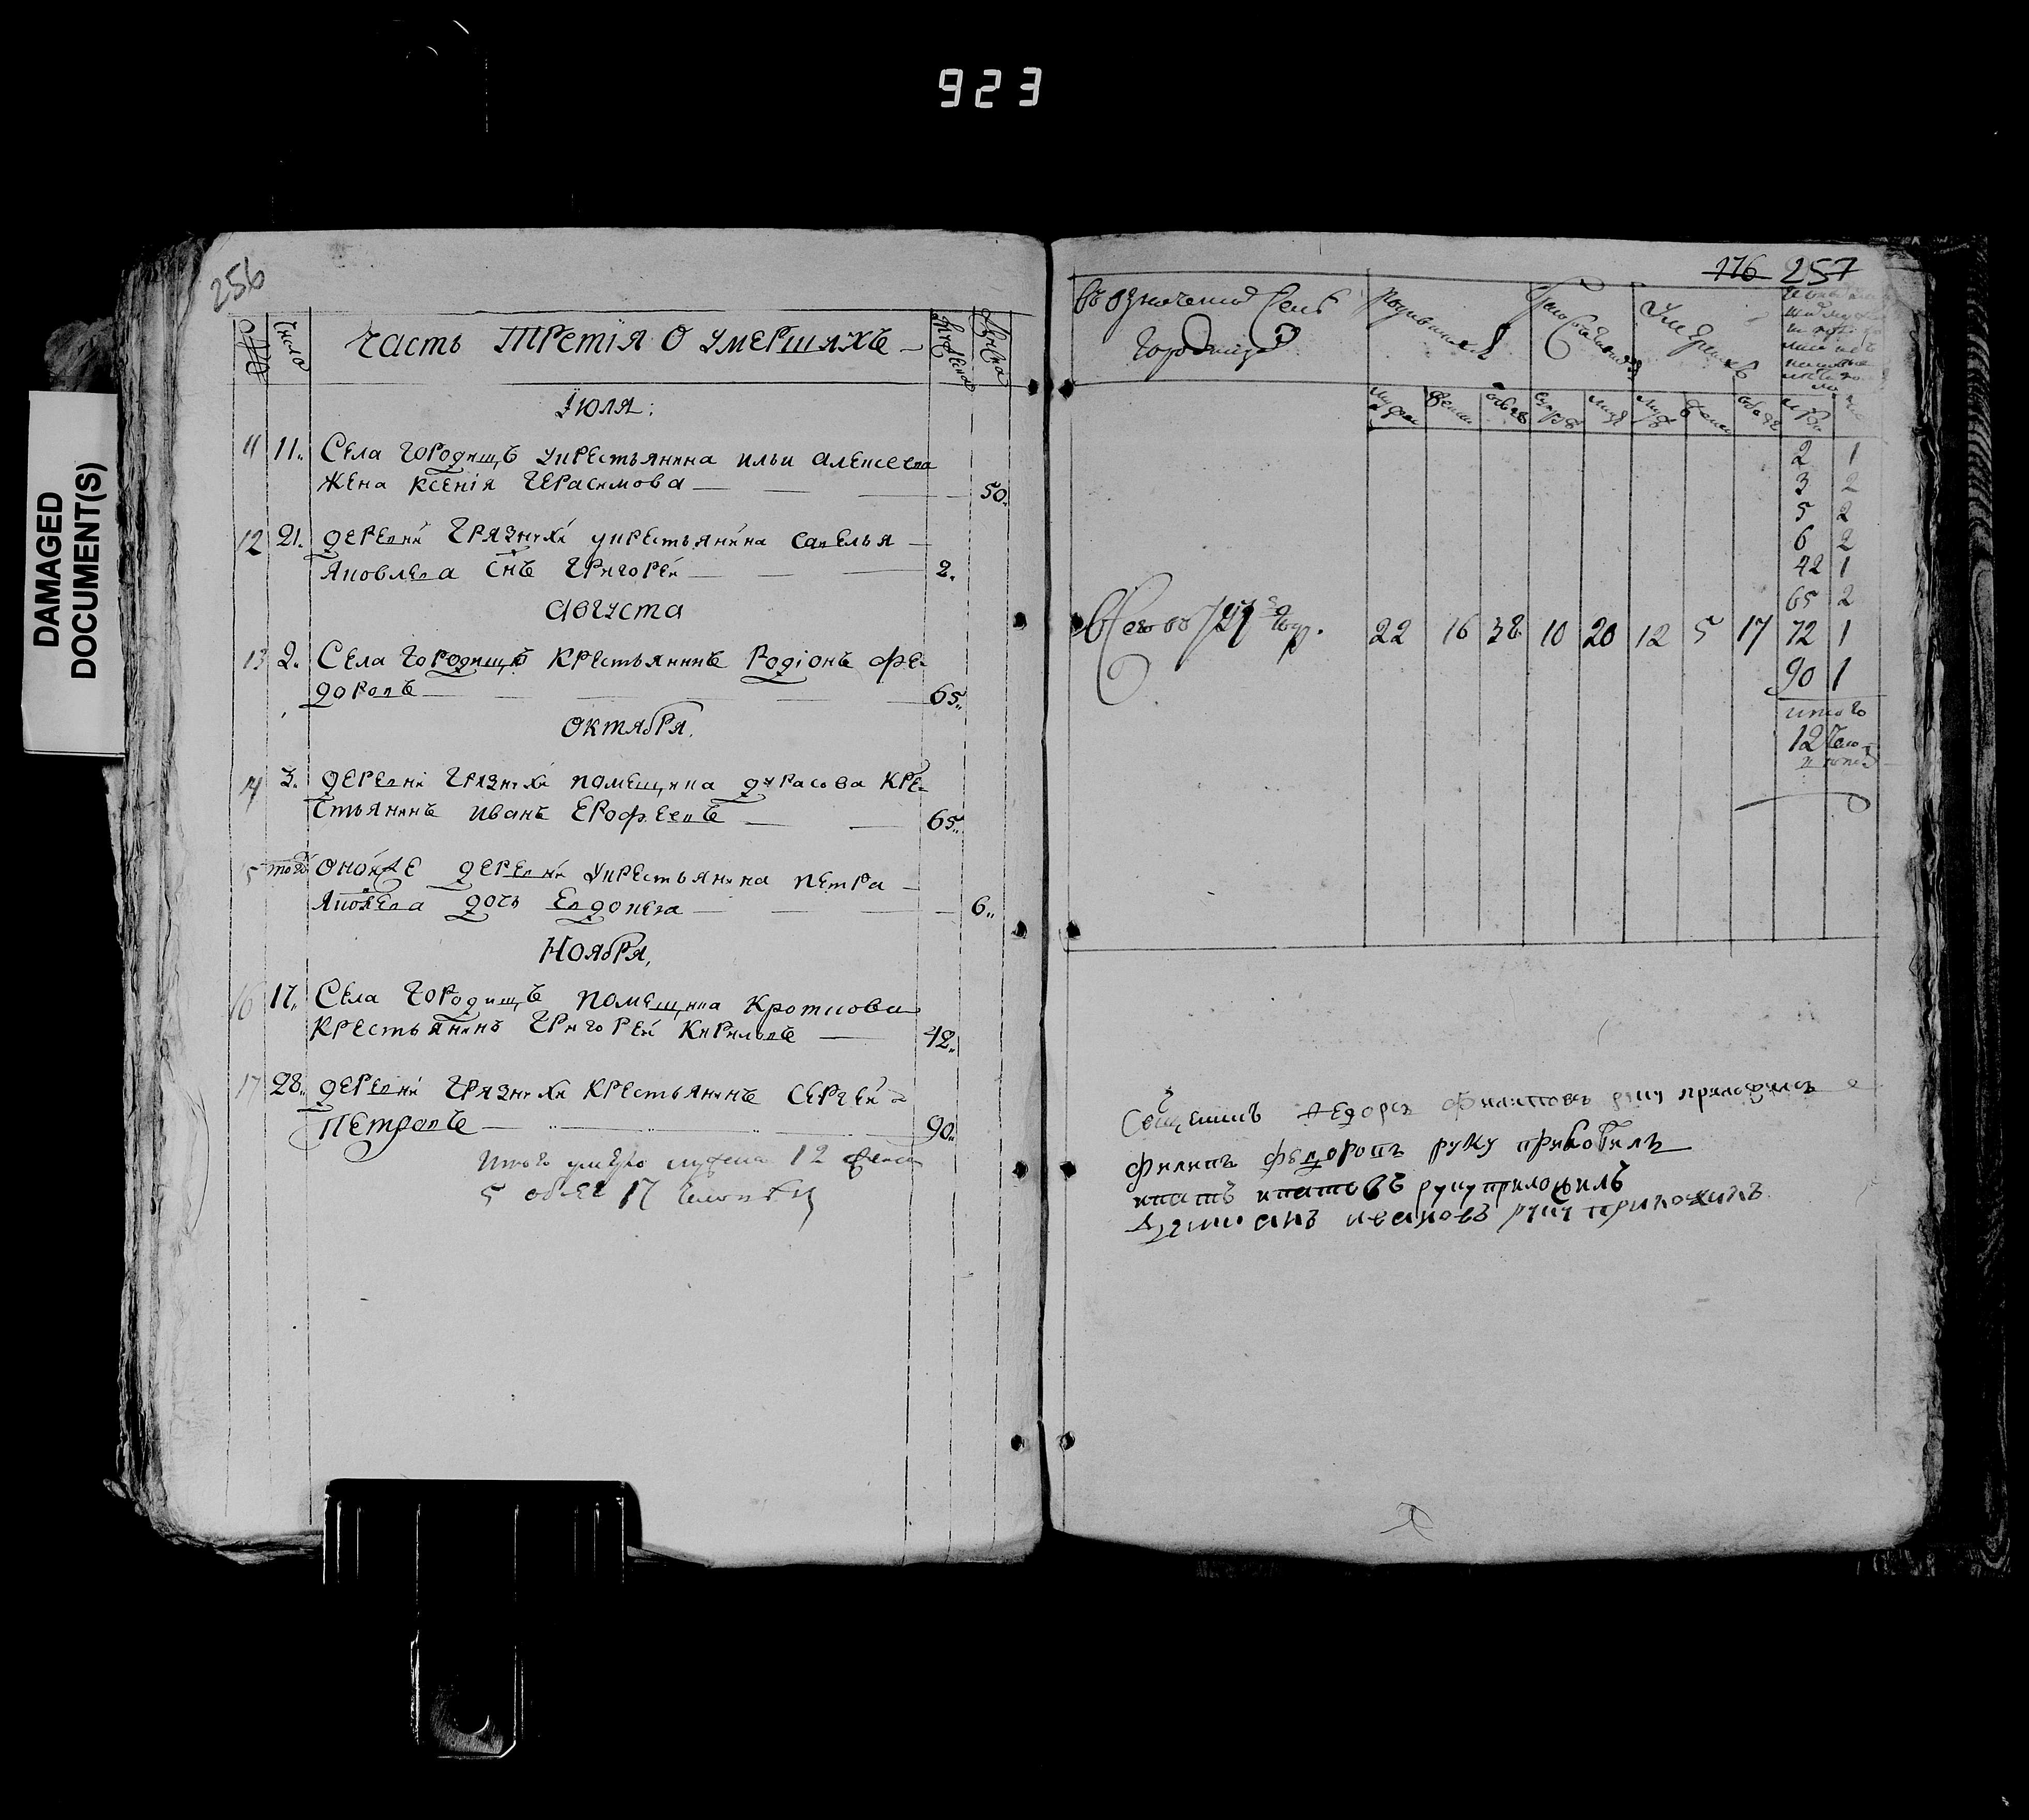 923
DAMAGED
DOCUMENT(S)
256
число
Часть третiя о умершихъ
Iюля:
11 11. Села Городищъ у крестьянина Ильи Алексеева
жена Ксенiя Герасимова 50.
12 21. деревни Грязнухи у крестьянина Савелья
Яковлева снъ Григорей 2.
Августа
13 2. Села Городищъ крестьянинъ Родiонъ Фе-
доровъ 65.
Октября.
14 3. деревни Грязнухи помещика Дурасова кре-
стьянинъ Иванъ Ерофеевъ 65.
5 того оной же деревни у крестьянина Петра
Яковлева дочь Евдокея 6.
Ноября.
16 17. Села Городищъ помещика Кроткова
крестьянинъ Григорей Кириловъ 42.
17 28. деревни Грязнухи крестьянинъ Сергей
Петровъ 90.
Итого умерло мужеска 12 женска
5 обоего 17 человекъ
176 257
въ означенной селе
Городище
родившихся
умершихъ
2 1
3 2
5 2
6 2
42 1
65 2
году. 22 16 38 10 20 12 5 17 72 1
90 1
итого
12 чело
Священникъ Федоръ Филиповъ руку приложилъ
Филипъ Федоровъ руку приложилъ
Ипатъ Ипатовъ руку приложилъ
Дамианъ Ивановъ руку приложилъ